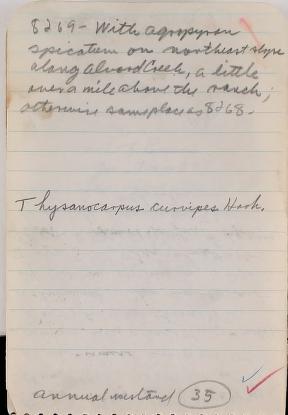 8269 - With agropyron
spicatum on northeast slope
along Alvord Creek, a little
over a mile above the ranch;
otherwise same place as 8268.
Thysanocarpus curvipes Hook.
annual mustard 35